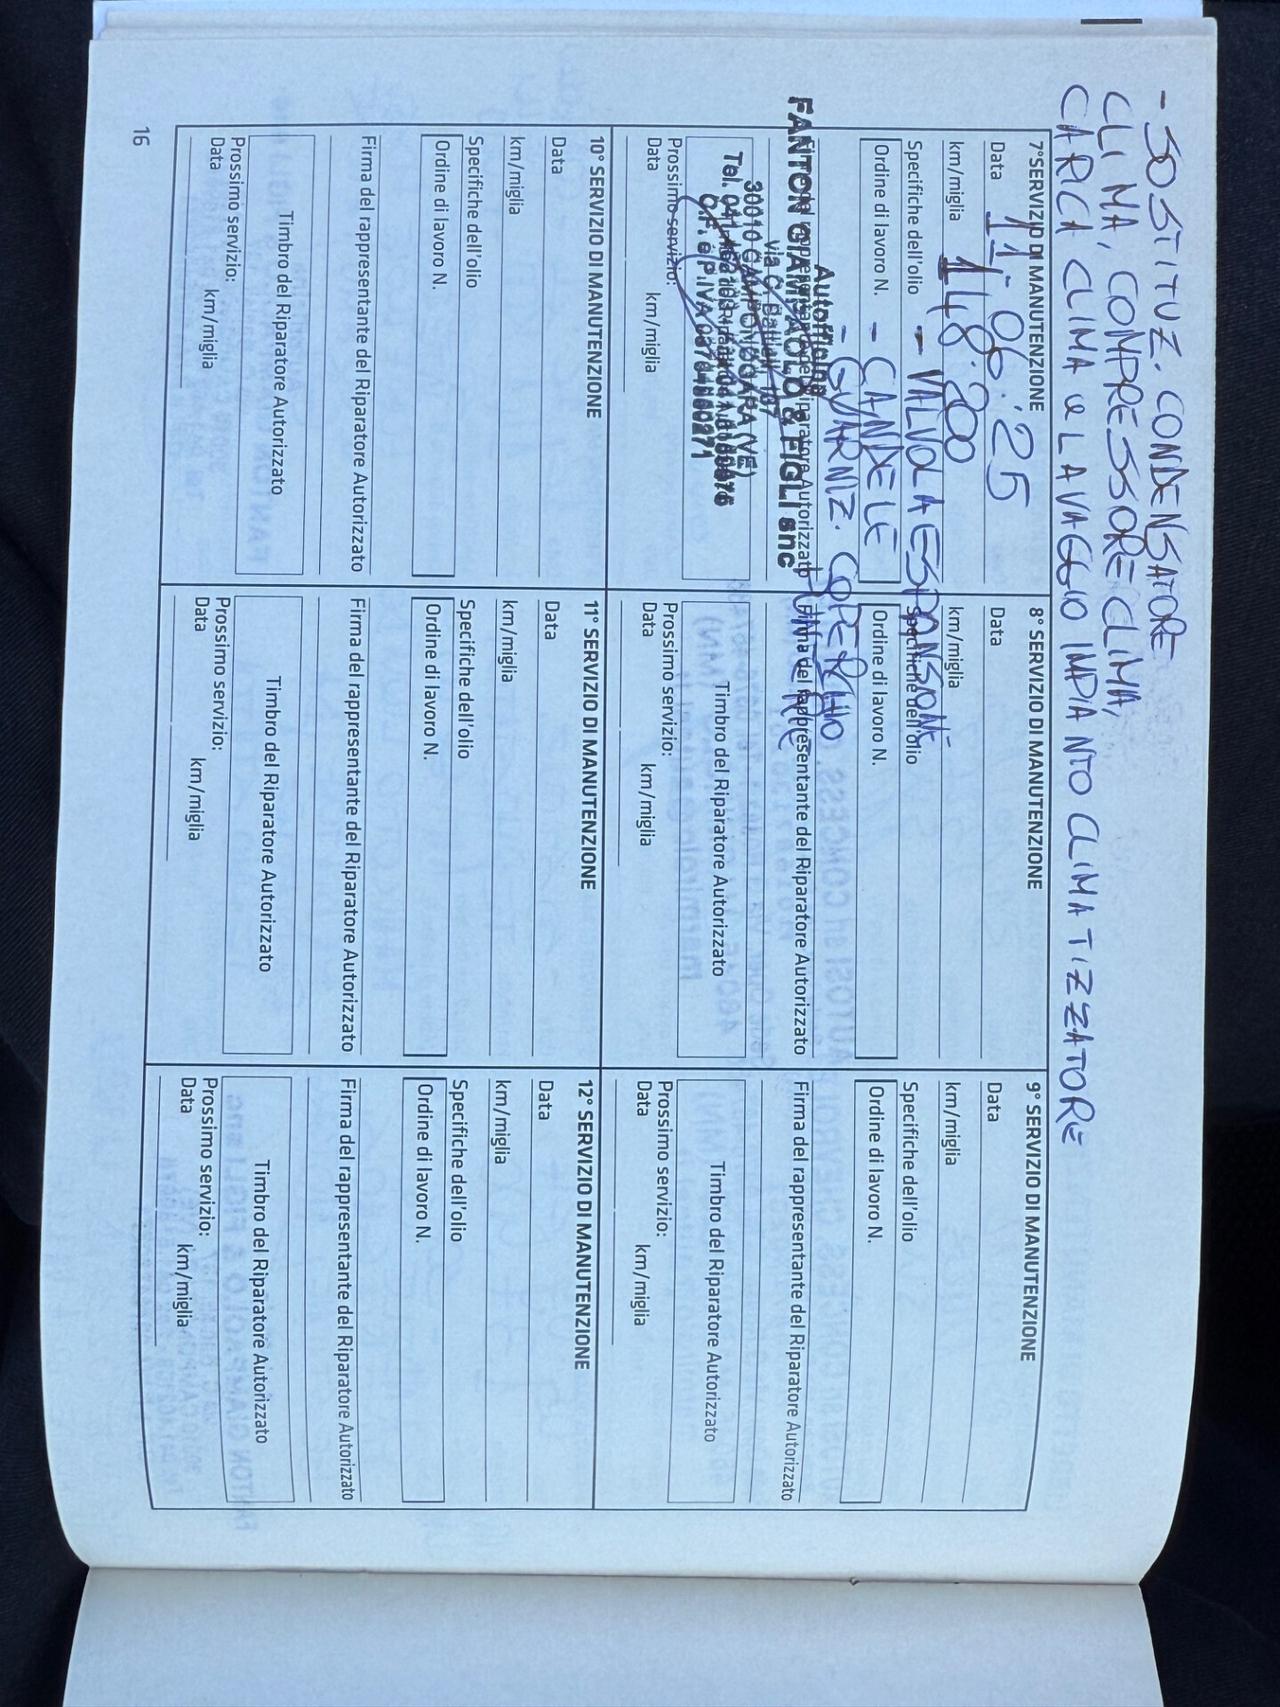 - SOSTITUZ. CONDENSATORE
CLIMA, COMPRESSORE CLIMA,
CARICA CLIMA e LAVAGGIO IMPIANTO CLIMATIZZATORE
7° SERVIZIO DI MANUTENZIONE
Data 11.06.'25
km/miglia 148.200
Specifiche dell'olio - VALVOLA ESPANSIONE
Ordine di lavoro N. - CANDELE
- GUARNIZ. COPERCHIO
PUNTERIE
Autofficina
FANTON GIAMPAOLO & FIGLI snc
via C. Battisti, 107
30010 CAMPONOGARA (VE)
Tel. 041
C.F. e P.IVA
Prossimo servizio:
Data km/miglia
8° SERVIZIO DI MANUTENZIONE
Data
km/miglia
Specifiche dell'olio
Ordine di lavoro N.
Firma del rappresentante del Riparatore Autorizzato
Timbro del Riparatore Autorizzato
Prossimo servizio:
Data km/miglia
9° SERVIZIO DI MANUTENZIONE
Data
km/miglia
Specifiche dell'olio
Ordine di lavoro N.
Firma del rappresentante del Riparatore Autorizzato
Timbro del Riparatore Autorizzato
Prossimo servizio:
Data km/miglia
10° SERVIZIO DI MANUTENZIONE
Data
km/miglia
Specifiche dell'olio
Ordine di lavoro N.
Firma del rappresentante del Riparatore Autorizzato
Timbro del Riparatore Autorizzato
Prossimo servizio:
Data km/miglia
11° SERVIZIO DI MANUTENZIONE
Data
km/miglia
Specifiche dell'olio
Ordine di lavoro N.
Firma del rappresentante del Riparatore Autorizzato
Timbro del Riparatore Autorizzato
Prossimo servizio:
Data km/miglia
12° SERVIZIO DI MANUTENZIONE
Data
km/miglia
Specifiche dell'olio
Ordine di lavoro N.
Firma del rappresentante del Riparatore Autorizzato
Timbro del Riparatore Autorizzato
Prossimo servizio:
Data km/miglia
16